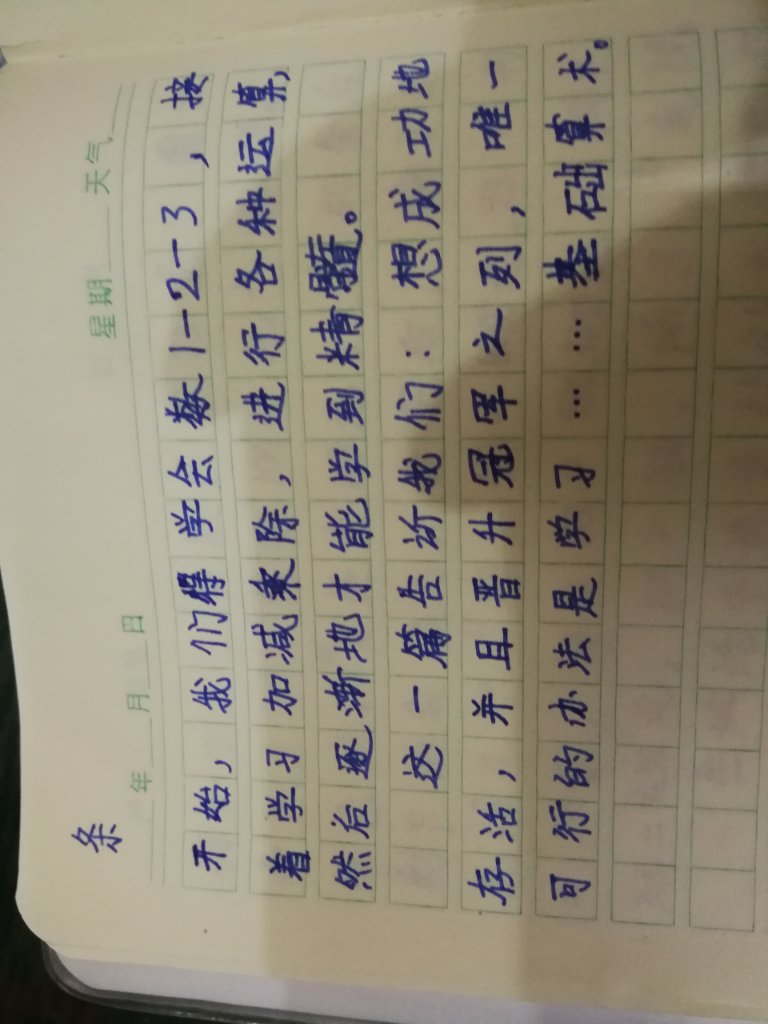 条
年 月 日 星期 天气
开始，我们得学会数1-2-3，接
着学习加减乘除，进行各种运算，
然后逐渐地才能学到精髓。
这一篇告诉我们：想成功地
存活，并且晋升冠军之列，唯一
可行的办法是学习……基础算术。